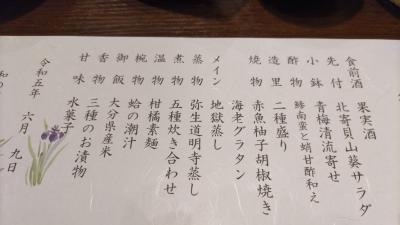 食前酒 果実酒
先付 北寄貝山葵サラダ
小鉢 青梅清流寄せ
酢物 鯵南蛮と蛸甘酢和え
造里 二種盛り
焼物 赤魚柚子胡椒焼き
海老グラタン
メイン 地獄蒸し
蒸物 弥生道明寺蒸し
煮物 五種炊き合わせ
温物 柑橘素麺
椀物 蛤の潮汁
御飯 大分県産米
香物 三種のお漬物
甘味 水菓子
令和五年 六月 九日